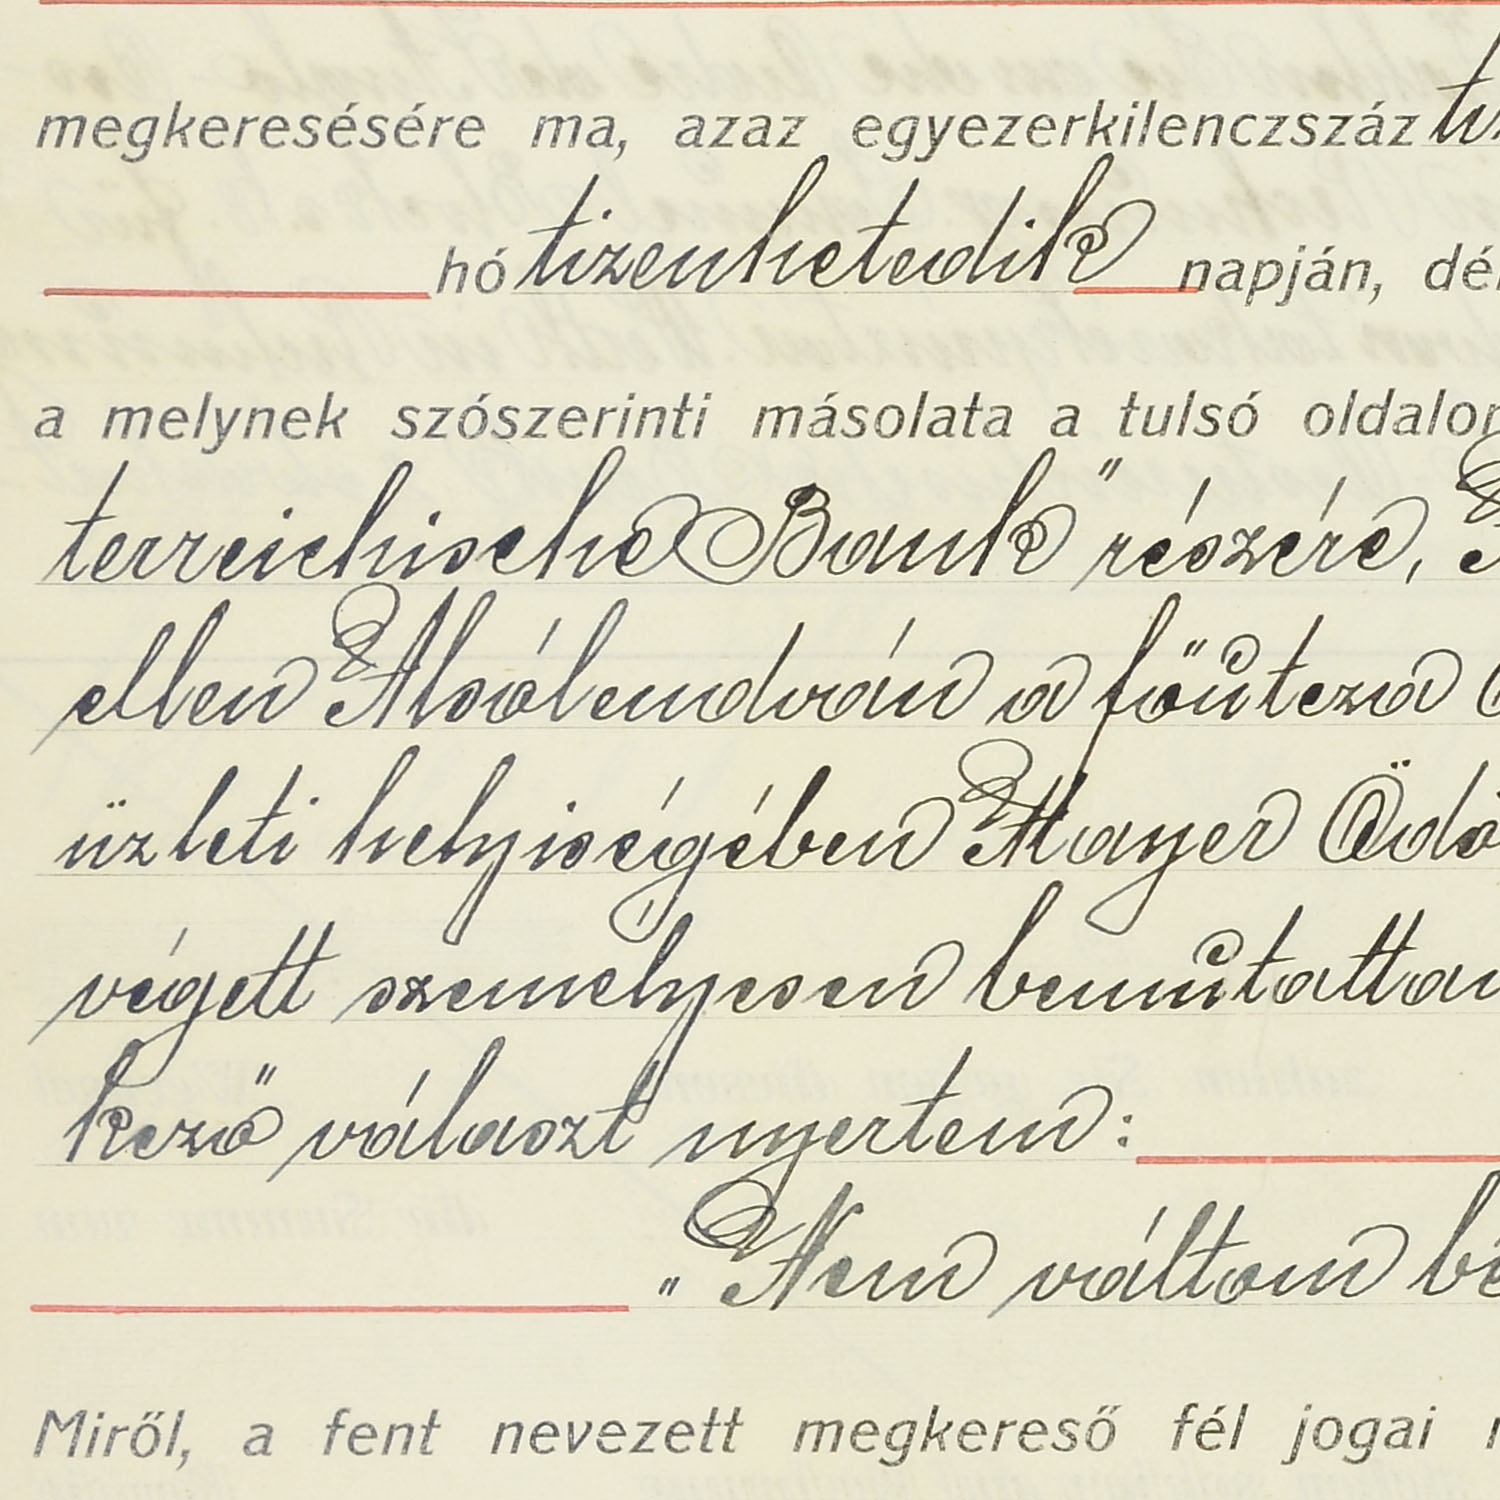 megkeresésére ma, azaz egyezerkilenczszáz
hó tizenhetedik napján, dél
a melynek szószerinti másolata a tulsó oldalon
terreichische Bank" részére,
ellen Alsólendván a főuteza
üzleti helyiségében Mayer Ödö
végett személyesen bemutattam
kező" választ nyertem:
„Nem váltom be
Miről, a fent nevezett megkereső fél jogai